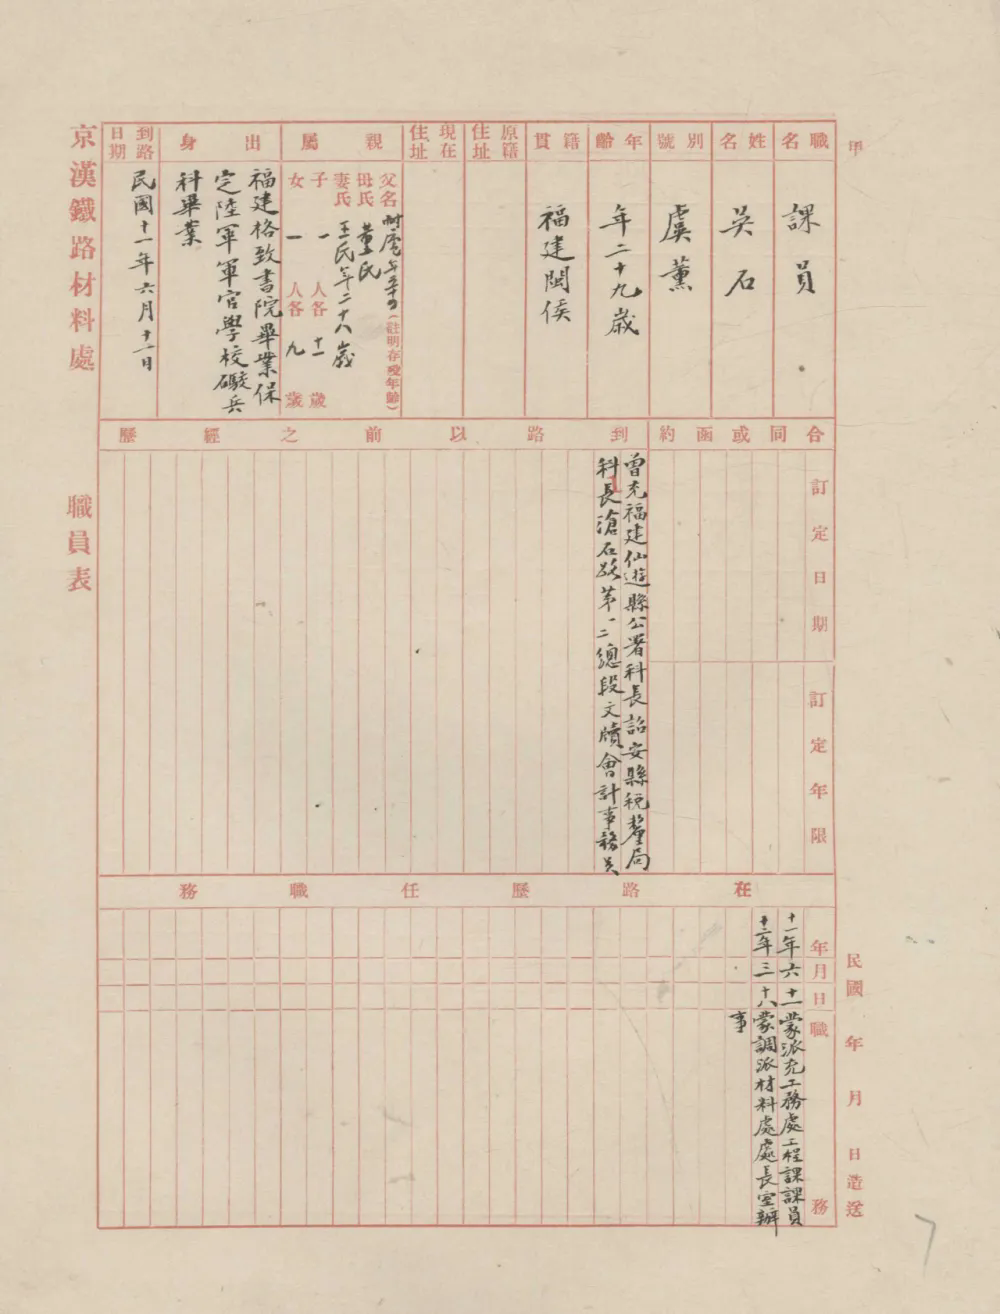 甲
職名
課員
姓名
吳石
別號
虞薰
年齡
年二十九歲
籍貫
福建閩侯
原籍住址
現在住址
親屬
父名 年五十 (註明存歿年齡)
母氏 董氏
妻氏 王氏年二十八歲
子 一 人各 十一 歲
女 一 人各 九 歲
出身
福建格致書院畢業保
定陸軍軍官學校礮兵
科畢業
到路日期
民國十一年六月十一日
京漢鐵路材料處 職員表
合同或函約
訂定日期
訂定年限
到路以前之經歷
曾充福建仙遊縣公署科長詔安縣稅釐局
科長滄石路第一二總段文牘會計事務員
在路歷任職務
年月日 職務
十一年六 十一 蒙派充工務處工程課課員
十二年三 十八 蒙調派材料處處長室辦
事
民國 年 月 日造送
7